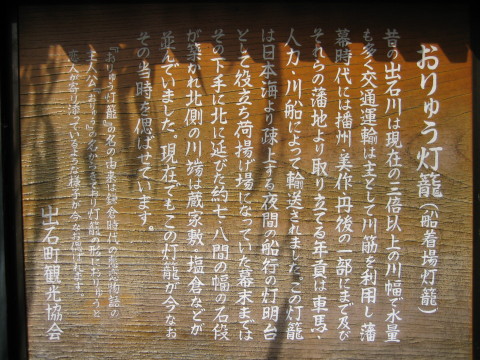 おりゅう灯籠(船着場灯籠)
昔の出石川は現在の三倍以上の川幅で水量
も多く交通運輸は主として川筋を利用し藩
幕時代には播州、美作、丹後の一部にまで及び
それらの藩地より取り立てる年貢は車馬、
人力・川船によって輸送されました。この灯籠
は日本海より疎上する夜間の船行の灯明台
として役立ち荷揚げ場になっていた幕末までは
その下手に北に延びた約七、八間の幅の石段
が築かれ北側の川端は蔵家敷・塩倉などが
並んでいました。現在でもこの灯籠が今なお
その当時を偲ばせています。
『おりゅう灯籠』の名の由来は鎌倉時代の
主人公『おりゅう』の名からきており灯籠の
出石町観光協会